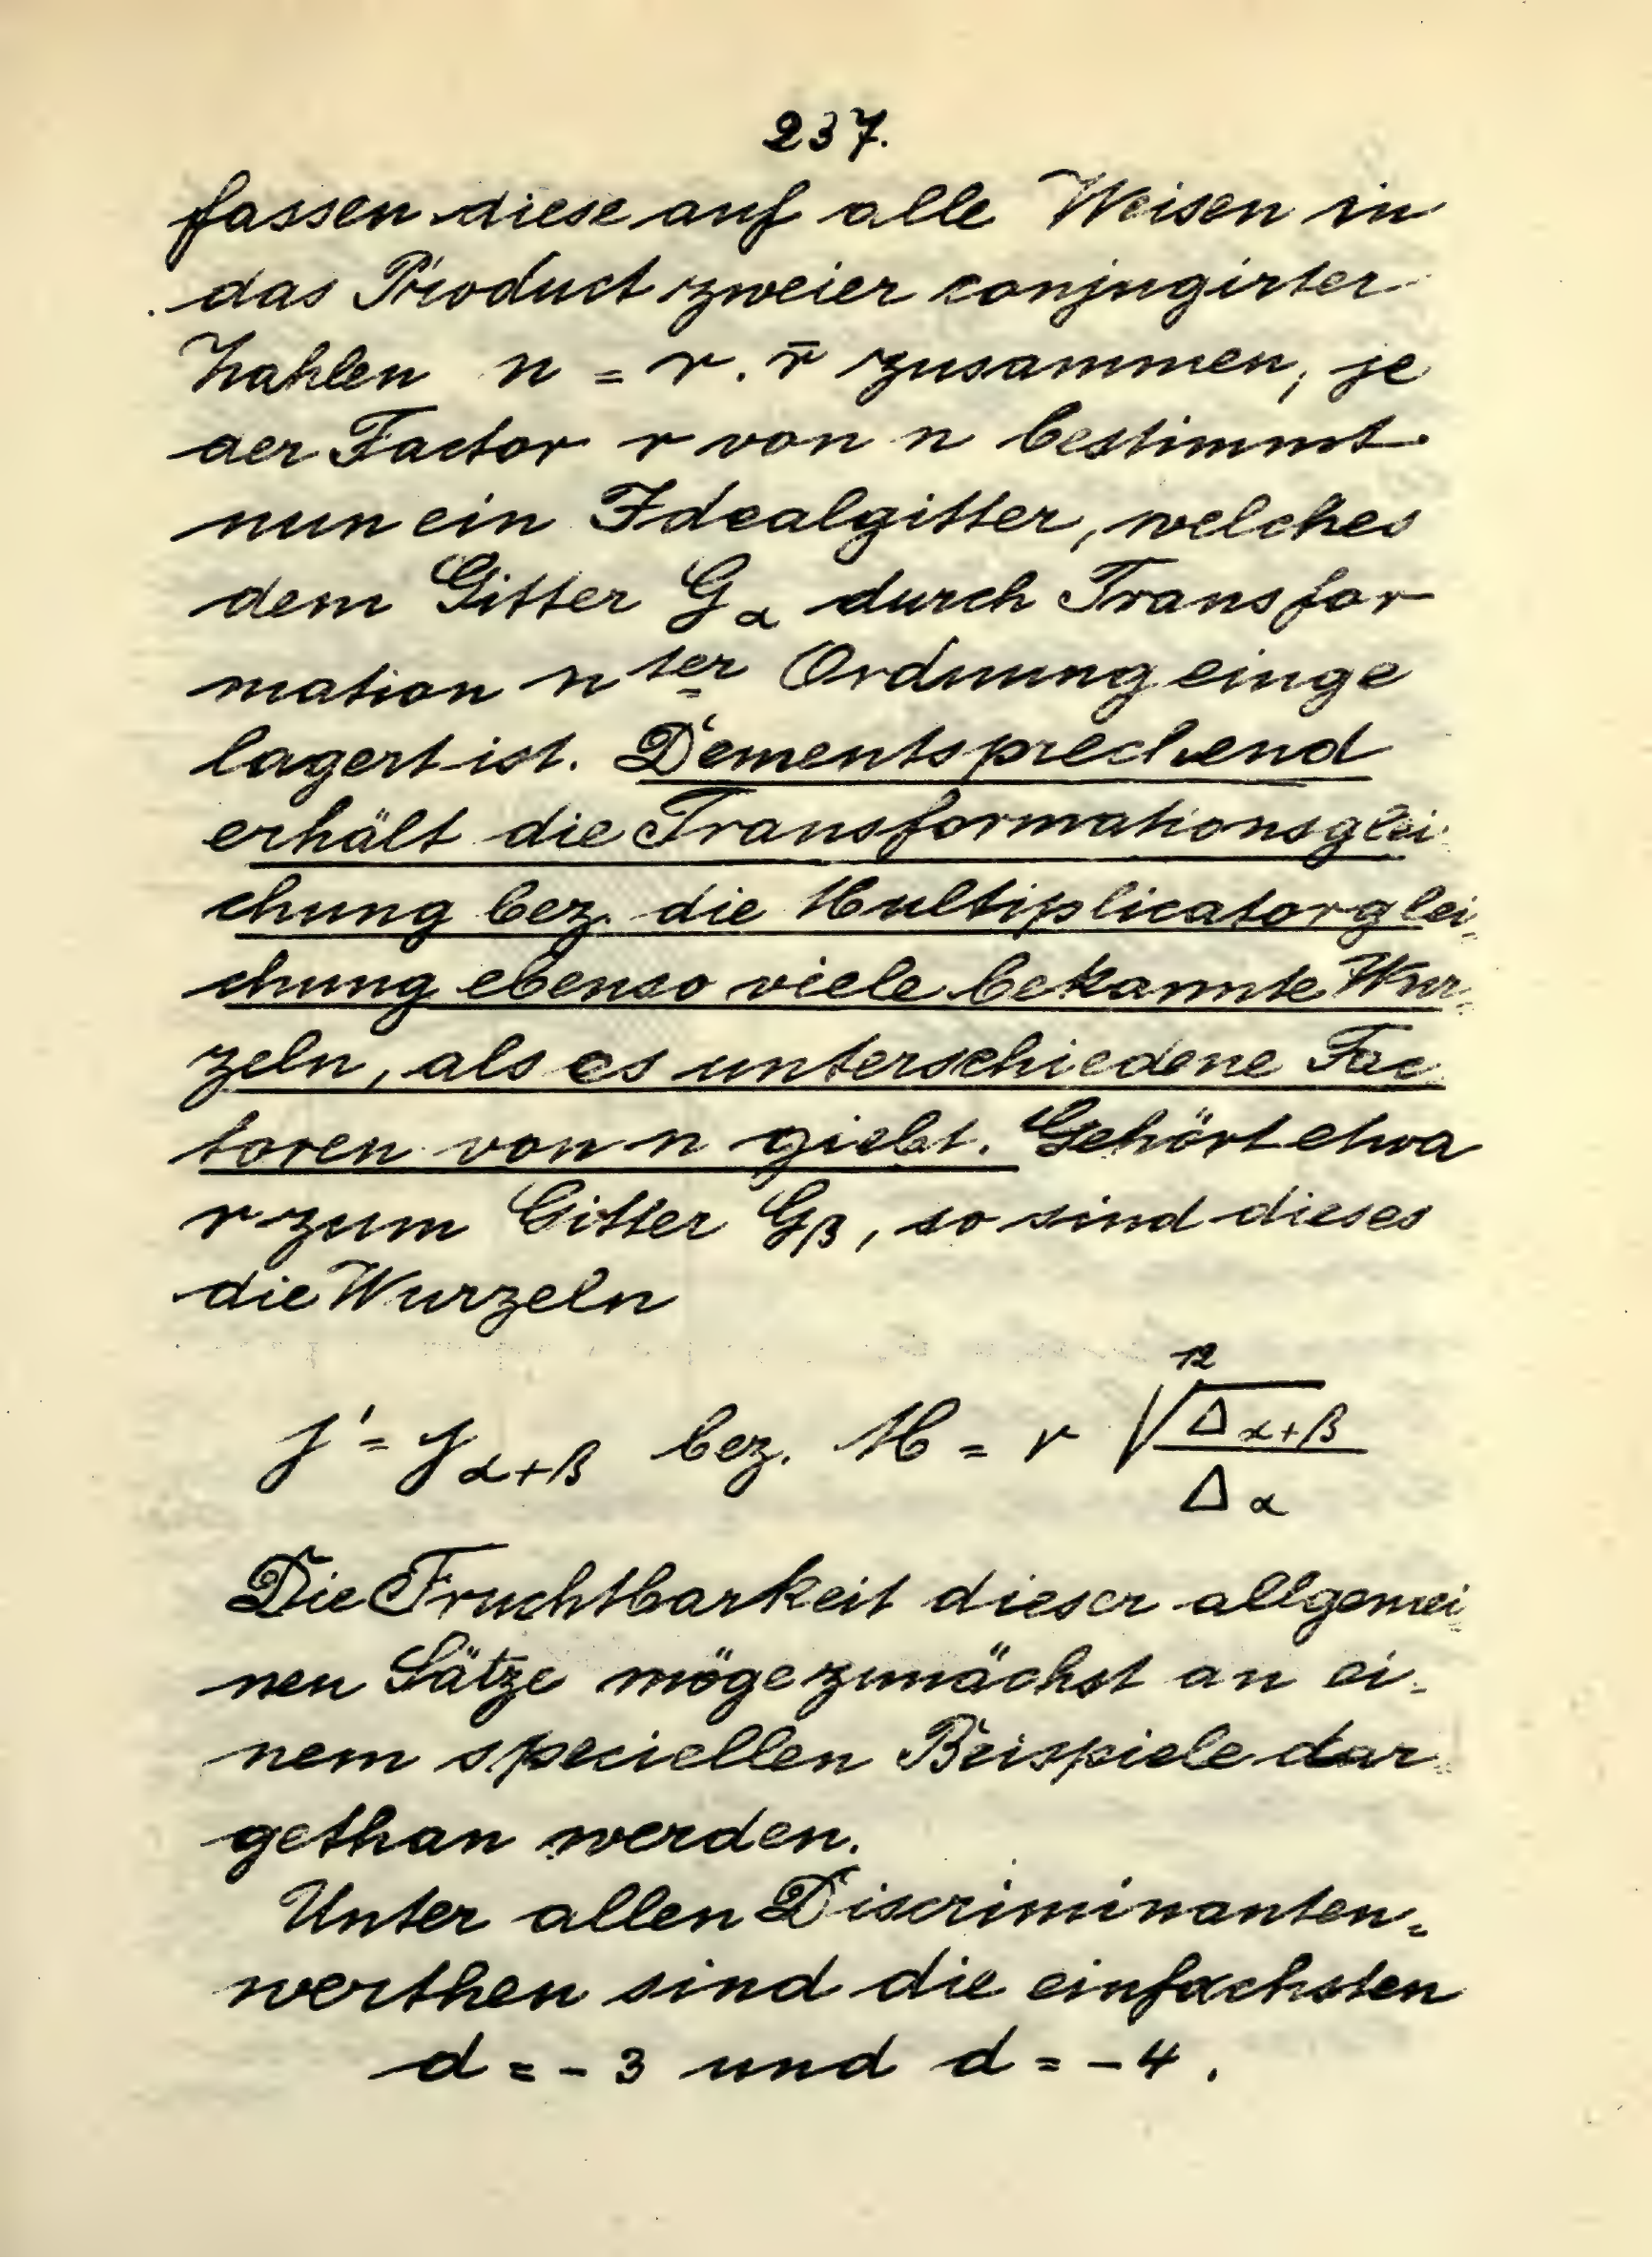 237.
fassen diese auf alle Weisen in
das Product zweier conjugirter
Zahlen n = r . r̄ zusammen, je
der Factor r von n bestimmt
nun ein Idealgitter, welches
dem Gitter G_α durch Transfor
mation n^ter Ordnung einge
lagert ist. Dementsprechend
erhält die Transformationsglei
chung bez. die Multiplicatorglei,
chung ebenso viele bekannte Wur,
zeln, als es unterschiedene Fac
toren von n giebt. Gehört etwa
r zum Gitter G_β, so sind dieses
die Wurzeln
j' = j_{α+β} bez. M = r \sqrt[12]{\frac{Δ_{α+β}}{Δ_α}}
Die Fruchtbarkeit dieser allgemei
nen Sätze möge zunächst an ei-
nem speciellen Beispiele dar
gethan werden.
Unter allen Discriminanten=
werthen sind die einfachsten
d = -3 und d = -4.